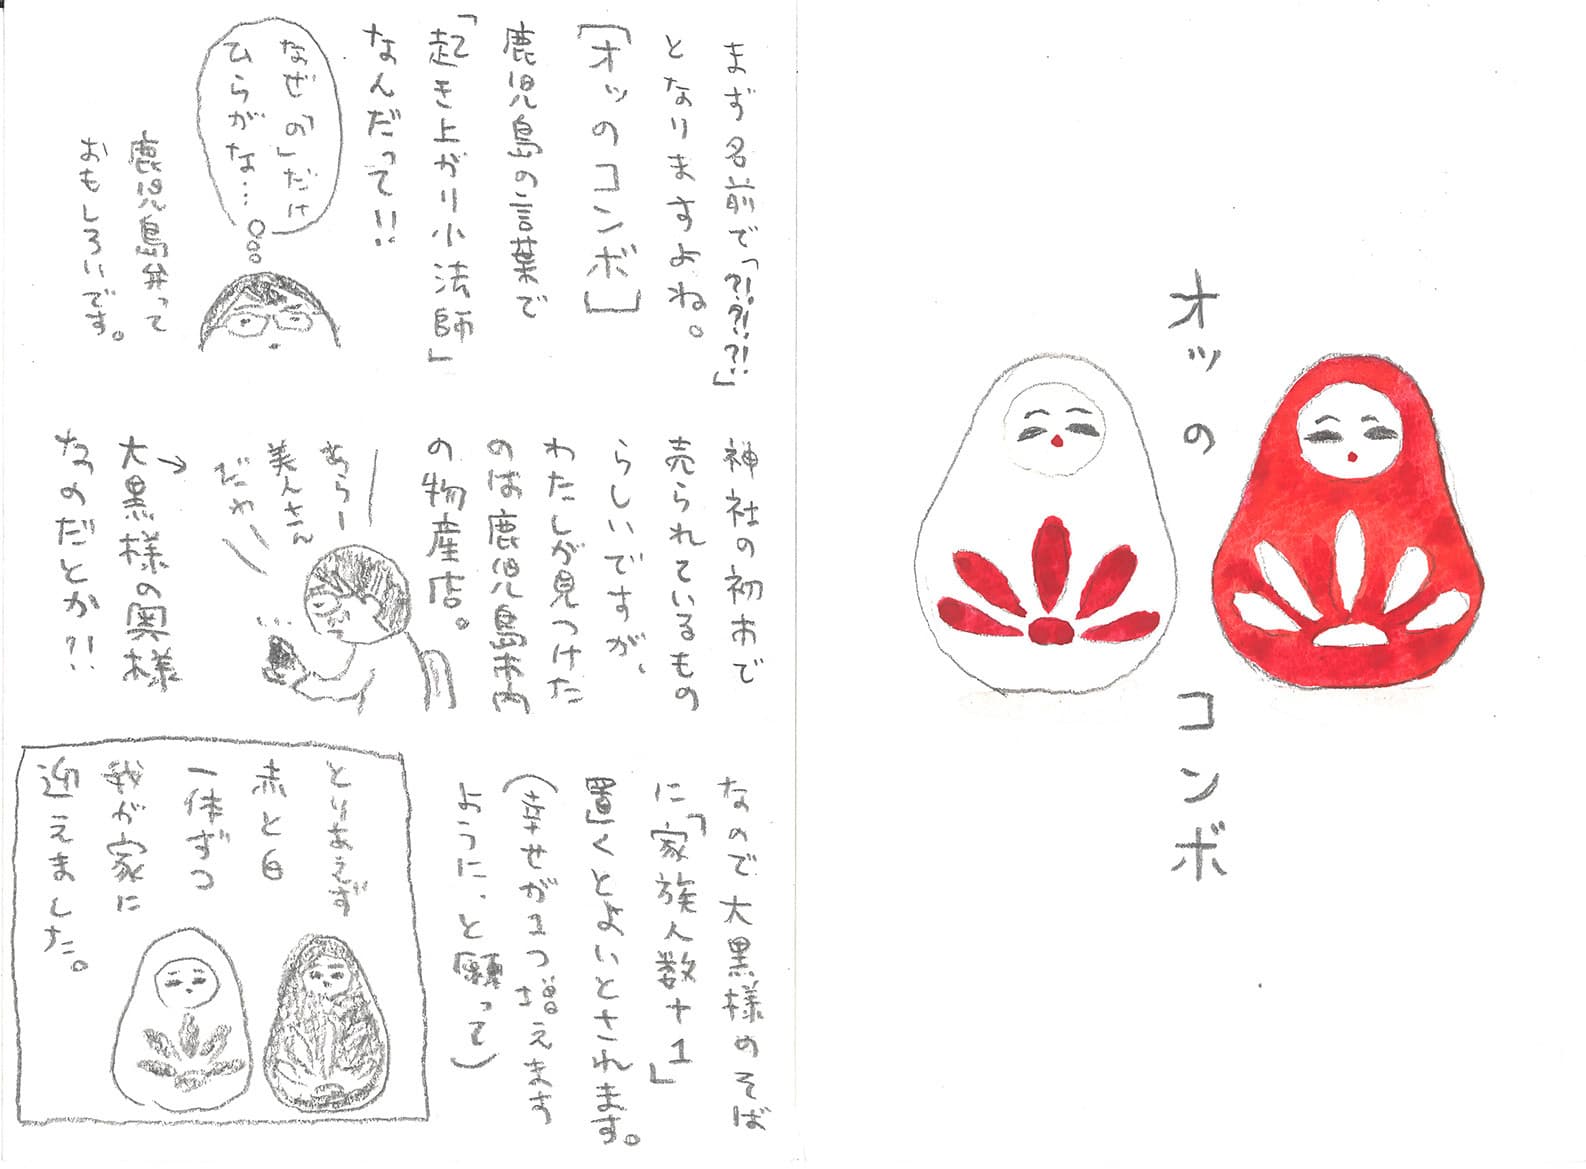 オッの
コンボ
まず名前で「?!?!?!」
となりますよね。
[オッのコンボ]
鹿児島の言葉で
「起き上がり小法師」
なんだって!!
なぜ「の」だけ
ひらがな…
鹿児島弁って
おもしろいです。
神社の初市で
売られているもの
らしいですが、
わたしが見つけた
のは鹿児島市内
の物産店。
あらー
美人さん
だわ
→大黒様の奥様
なのだとか?!
なので大黒様のそば
に「家族人数+1」
置くとよいとされます。
(幸せが1つ増えます
ように、と願って)
とりあえず
赤と白
一体ずつ
我が家に
迎えました。